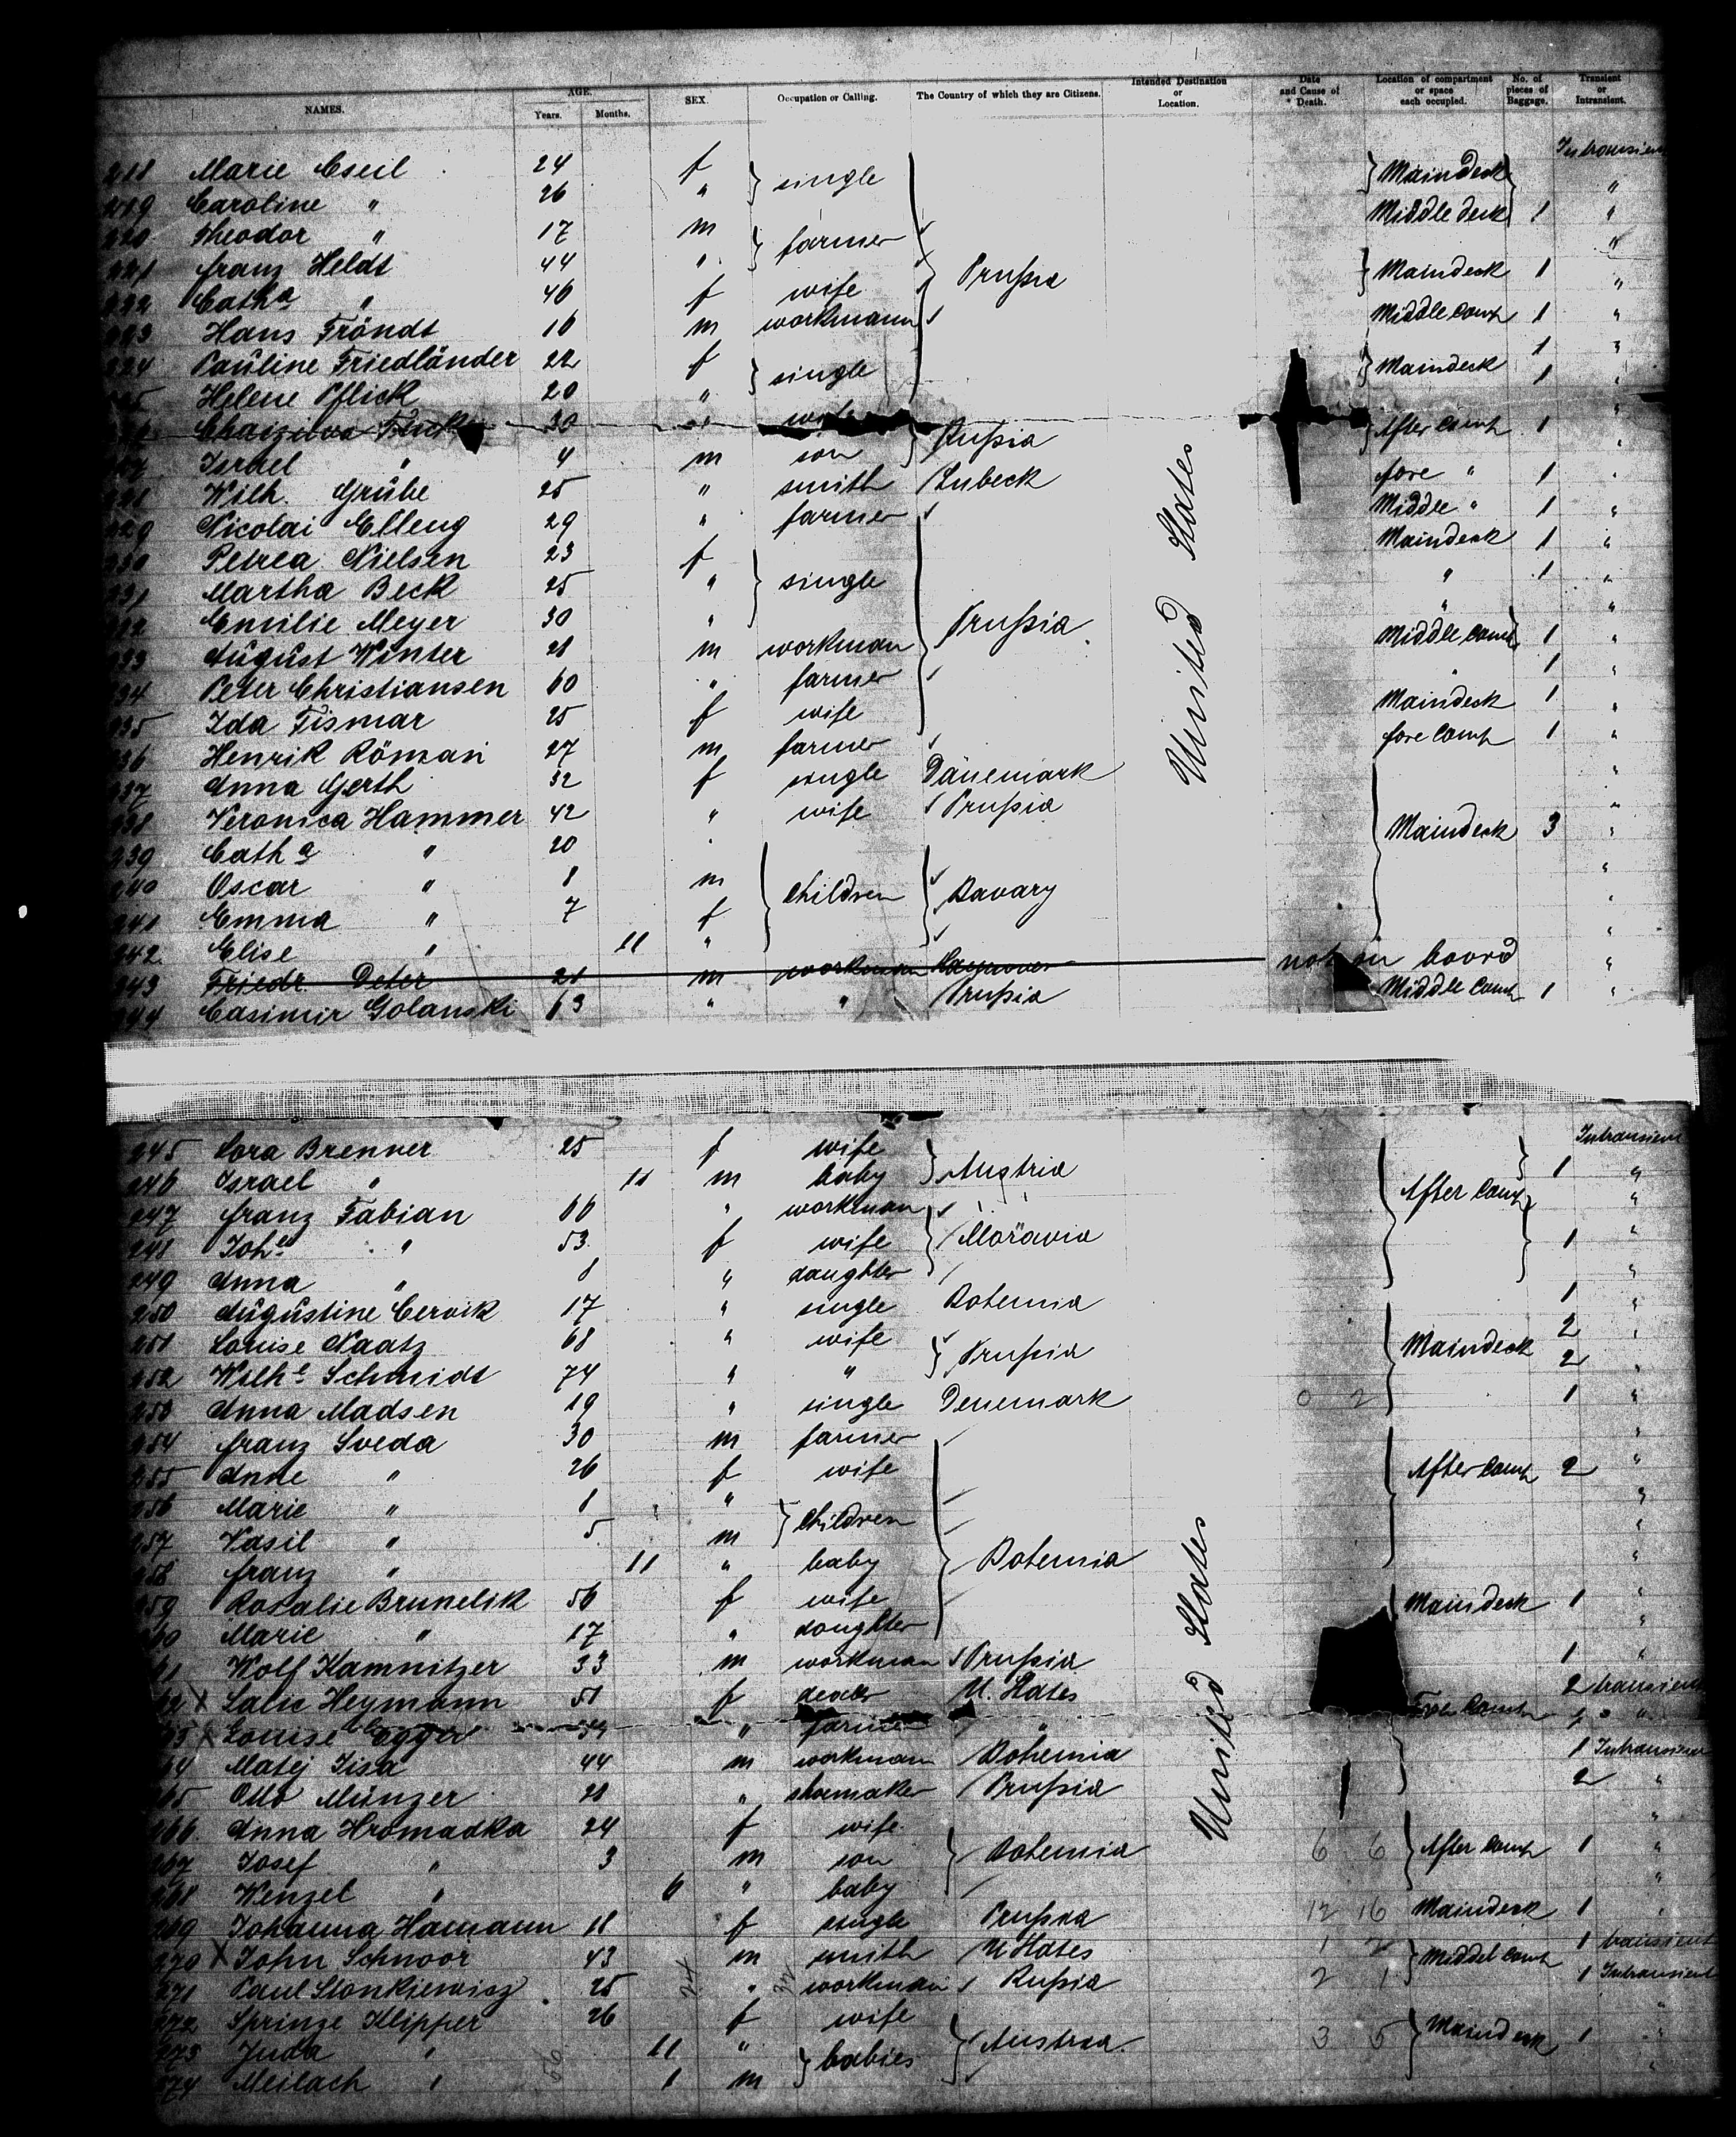 NAMES. AGE. Years. Months. SEX. Occupation or Calling. The Country of which they are Citizens. Intended Destination or Location. Date and Cause of Death. Location of compartment or space each occupied. No. of pieces of Baggage. Transient or Intransient.
Marie Cseil 24 f single Maindeck Intransient
219 Caroline " 26 " "
220 Theodor " 17 m farmer Middle deck 1 "
221 Franz Heldt 44 " Prußia Maindeck 1 "
222 Catha " 46 f wife "
223 Hans Fröndt 16 m workmann Middle Comp 1 "
224 Pauline Friedländer 22 f single Maindeck 1 "
Helene Pflick 20 " 1 "
30 " wife Rußia After Comp 1 "
Israel " 4 m son "
Wilh. Grübe 25 " smith Lubeck fore " 1 "
229 Nicolai Elleng 29 " farmer Middle " 1 "
230 Petrea Nielsen 23 f single Prußia Maindeck 1 "
231 Martha Beck 25 " " 1 "
232 Emilie Meyer 30 " " "
233 August Winter 28 m workman Middle Comp 1 "
234 Peter Christiansen 60 " farmer " 1 "
235 Ida Tismar 25 f wife Maindeck 1 "
236 Henrik Röman 27 m farmer fore Comp 1 "
237 Anna Gerth 32 f single Dänemark "
238 Veronica Hammer 42 " wife Prußia Maindeck 3 "
239 Catha " 20 " children Bavary "
240 Oscar " 8 m "
241 Emma " 7 f "
242 Elise " 11 " "
243 Friedr. Deter 21 m workman Hannover not on board "
244 Casimir Golanski 63 " " Prußia Middle Comp 1 "
United States
245 Cora Brenner 25 f wife Austria After Comp 1 Intransient
246 Israel " 11 m baby "
247 Franz Fabian 66 " workman Moravia 1 "
248 Johe " 53 f wife "
249 Anna " 8 " daughter "
250 Augustine Cervik 17 " single Bohemia Maindeck 1 "
251 Louise Naatz 68 " wife Prußia 2 "
252 Wilhe Schmidt 74 " " 2 "
253 Anna Madsen 19 " single Denemark 0 2 1 "
254 Franz Sveda 30 m farmer Bohemia After Comp 2 "
255 Anne " 26 f wife "
256 Marie " 8 " children "
257 Vasil " 5 m "
258 Franz " 11 " baby "
259 Rosalie Brunelik 56 f wife Maindeck 1 "
260 Marie " 17 " daughter "
Wolf Kamnitzer 33 m workman Prußia 1 "
X Salie Heymann 51 f dealer U. States Fore Comp 2 transient
X Louise Egger 34 " farmer " "
Matej Jisa 44 m workman Bohemia 1 Intransient
Otto Münzer 28 " shomaker Prußia 2 "
266 Anna Hromadka 24 f wife Bohemia 6 6 After Comp 1 "
267 Josef " 3 m son "
268 Wenzel " 6 " baby "
269 Johanna Hamann 18 f single Prußia 12 16 Maindeck 1 "
270 X John Schnoor 43 m smith U States 1 2 Middel Comp 1 transient
271 Paul Stonkiewicz 25 " workman Rußia 2 1 1 Intransient
272 Sprinze Klipper 26 f wife Austria 3 5 Maindeck 1 "
273 Juda " 11 " babies "
274 Meilach " 1 m "
United States